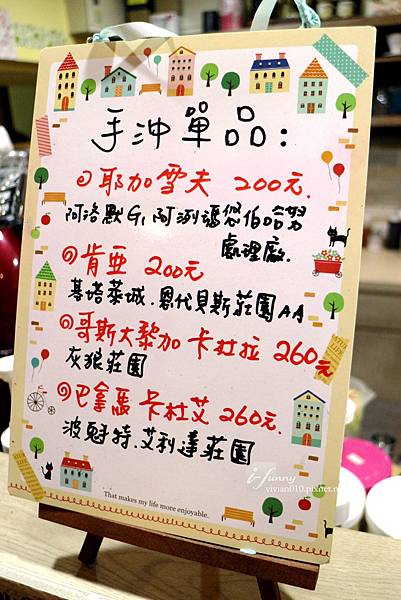 手沖單品：
①耶加雪夫 200元.
阿洛默G1 阿涮瑪悠伯哈努
處理廠.
②肯亞 200元
基塔莊城.恩代貝斯莊園AA
③哥斯大黎加 卡杜拉 260元
灰狼莊園
④巴拿馬 卡杜艾 260元.
波魁特.艾利達莊園
That makes my life more enjoyable.
i-funny
vivian010.pixnet.n